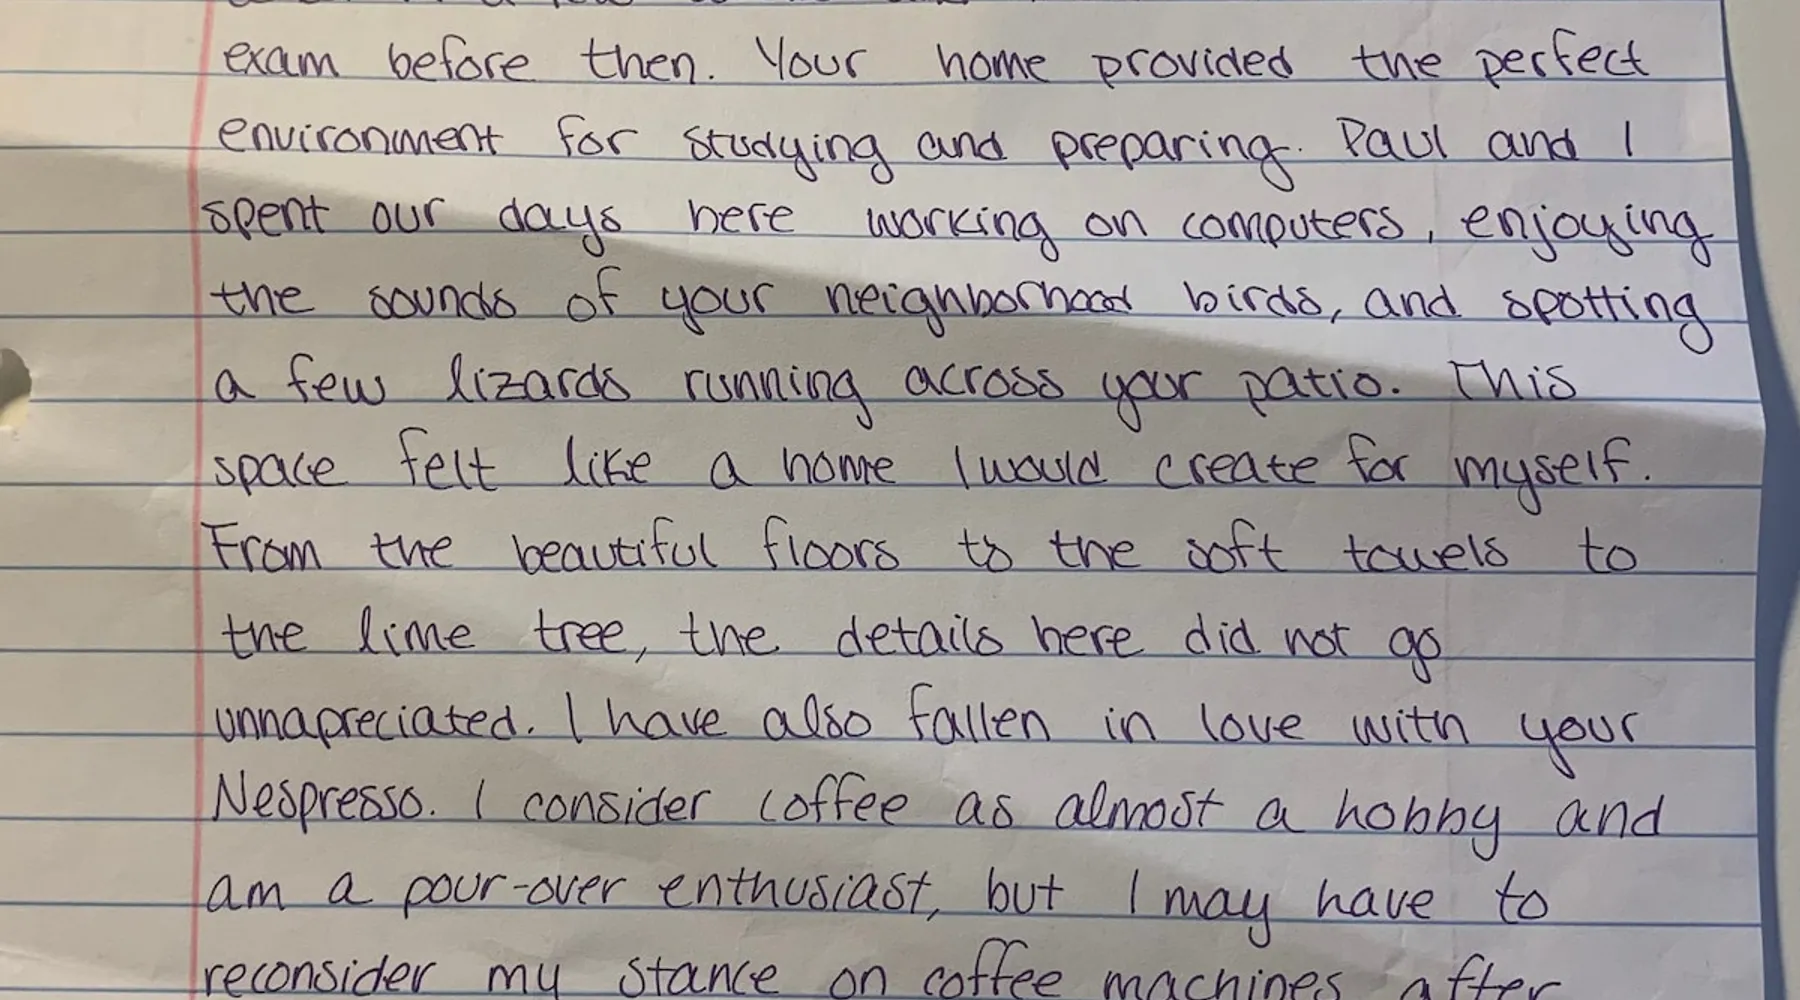 exam before then. Your home provided the perfect
environment for studying and preparing. Paul and I
spent our days here working on computers, enjoying
the sounds of your neighborhood birds, and spotting
a few lizards running across your patio. This
space felt like a home I would create for myself.
From the beautiful floors to the soft towels to
the lime tree, the details here did not go
unnapreciated. I have also fallen in love with your
Nespresso. I consider coffee as almost a hobby and
am a pour-over enthusiast, but I may have to
reconsider my stance on coffee machines after